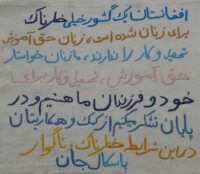 افغانستان یک کشور خیلی خطرناک
برای زنان شده است، زنان حق آموزش
تحصیل و کار را ندارند، ما زنان خواستار
حق آموزش، تحصیل و کار برای
خود و فرزندان ما هستیم و در
پایان تشکر میکنم از کمک و همکاریتان
در این شرایط خطرناک و ناگوار
پاسکال جان